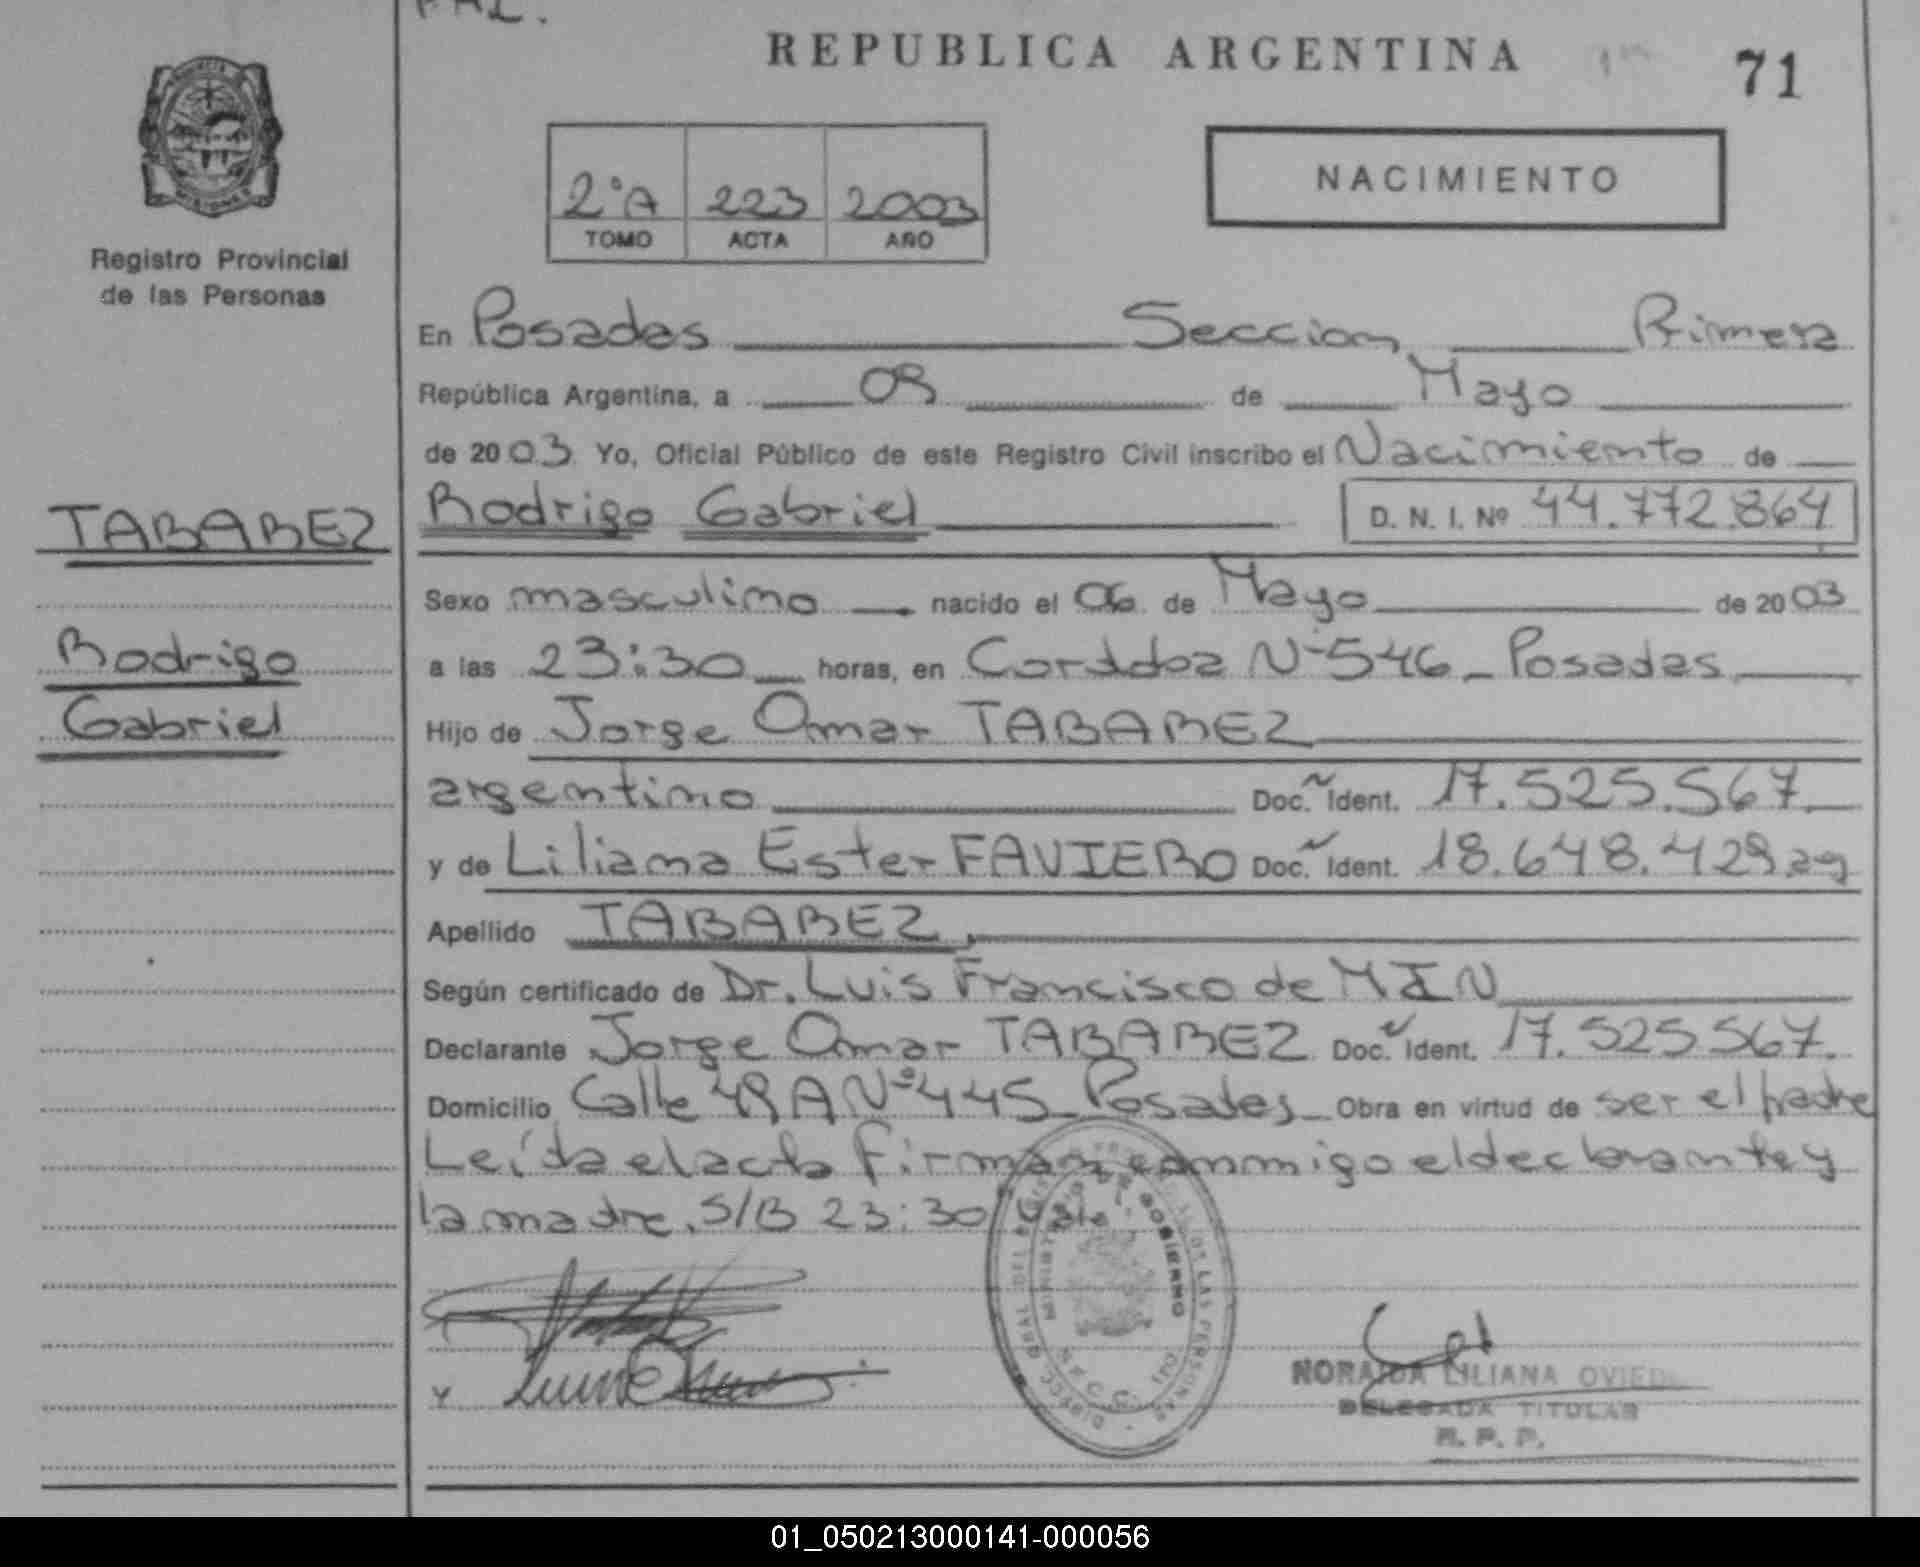 REPUBLICA ARGENTINA
71
2°A 223 2003
TOMO ACTA AÑO
NACIMIENTO
MISIONES
Registro Provincial
de las Personas
TABAREZ
Rodrigo
Gabriel
En Posadas Seccion Primera
República Argentina, a 09 de Mayo
de 2003 Yo, Oficial Público de este Registro Civil inscribo el Nacimiento de
Rodrigo Gabriel D. N. I. Nº 44.772.864
Sexo masculino nacido el 06 de Mayo de 2003
a las 23:30 horas, en Cordoba Nº 546 - Posadas
Hijo de Jorge Omar TABAREZ
argentino Doc. Ident. 17.525.567
y de Liliana Ester FAVIERO Doc. Ident. 18.648.429 arg
Apellido TABAREZ
Según certificado de Dr. Luis Francisco de MIN
Declarante Jorge Omar TABAREZ Doc. Ident. 17.525.567.
Domicilio Calle 49 A Nº 445 - Posadas - Obra en virtud de ser el padre
Leída el acta firman conmigo el declarante y
la madre. S/B 23:30 Vale
MINISTERIO DE GOBIERNO
NORAIDA LILIANA OVIEDO
DELEGADA TITULAR
R. P. P.
01_050213000141-000056